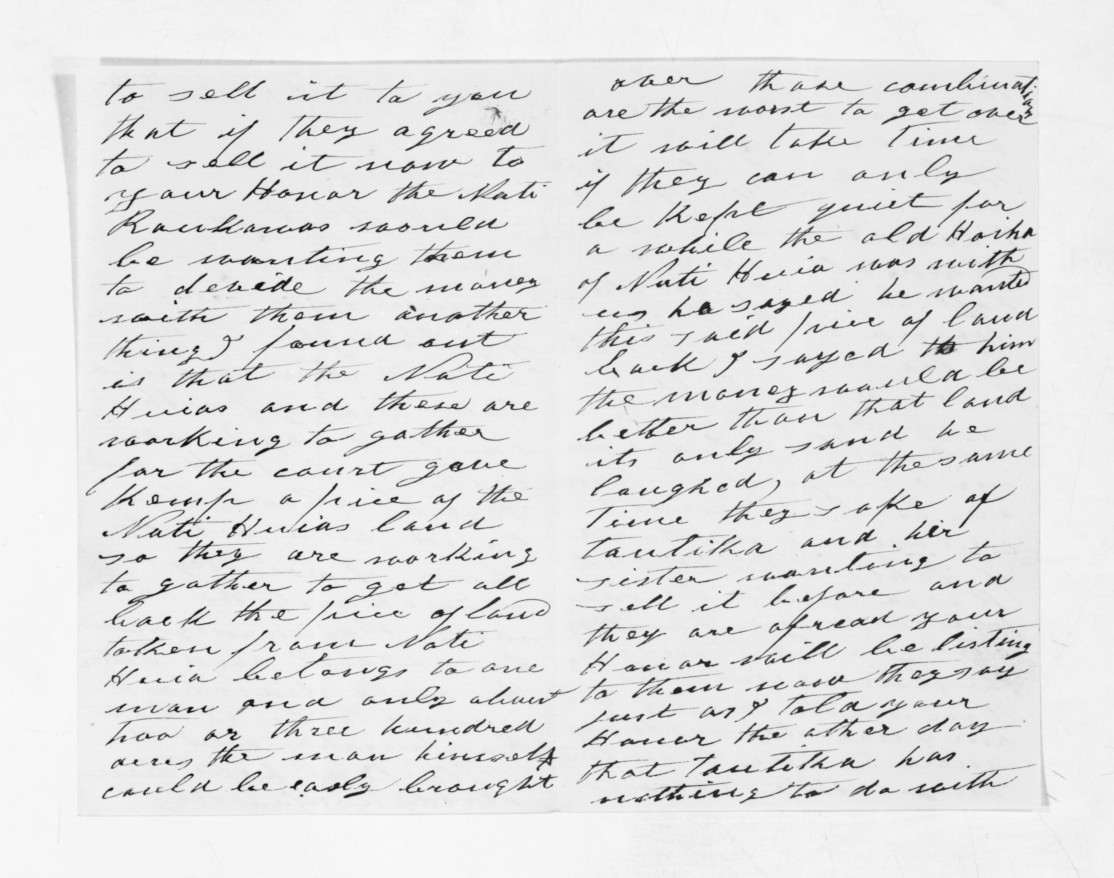 to sell it to you
that if they agreed
to sell it now to
your Honor the Nati
Raukawas would
be wanting them
to devide the money
with them another
thing I found out
is that the Nati
Huias and these are
working to gather
for the court gave
Kemp a piece of the
Nati Huias land
so they are working
to gather to get all
back the piece of land
taken from Nati
Huia belongs to one
man and only about
too or three hundred
acres the man himself
could be easly brought
over those combinations
are the worst to get over
it will take time
if they can only
be kept quiet for
a while the old Hoika
of Nati Huia was with
us he sayed he wanted
this said piece of land
back I sayed to him
the money would be
better than that land
its only sand he
laughed, at the same
time they spke of
tautika and her
sister wanting to
sell it before and
they are afread your
Honor will be listing
to them now they say
just as I told your
Honor the other day
that tautika has
nothing to do with